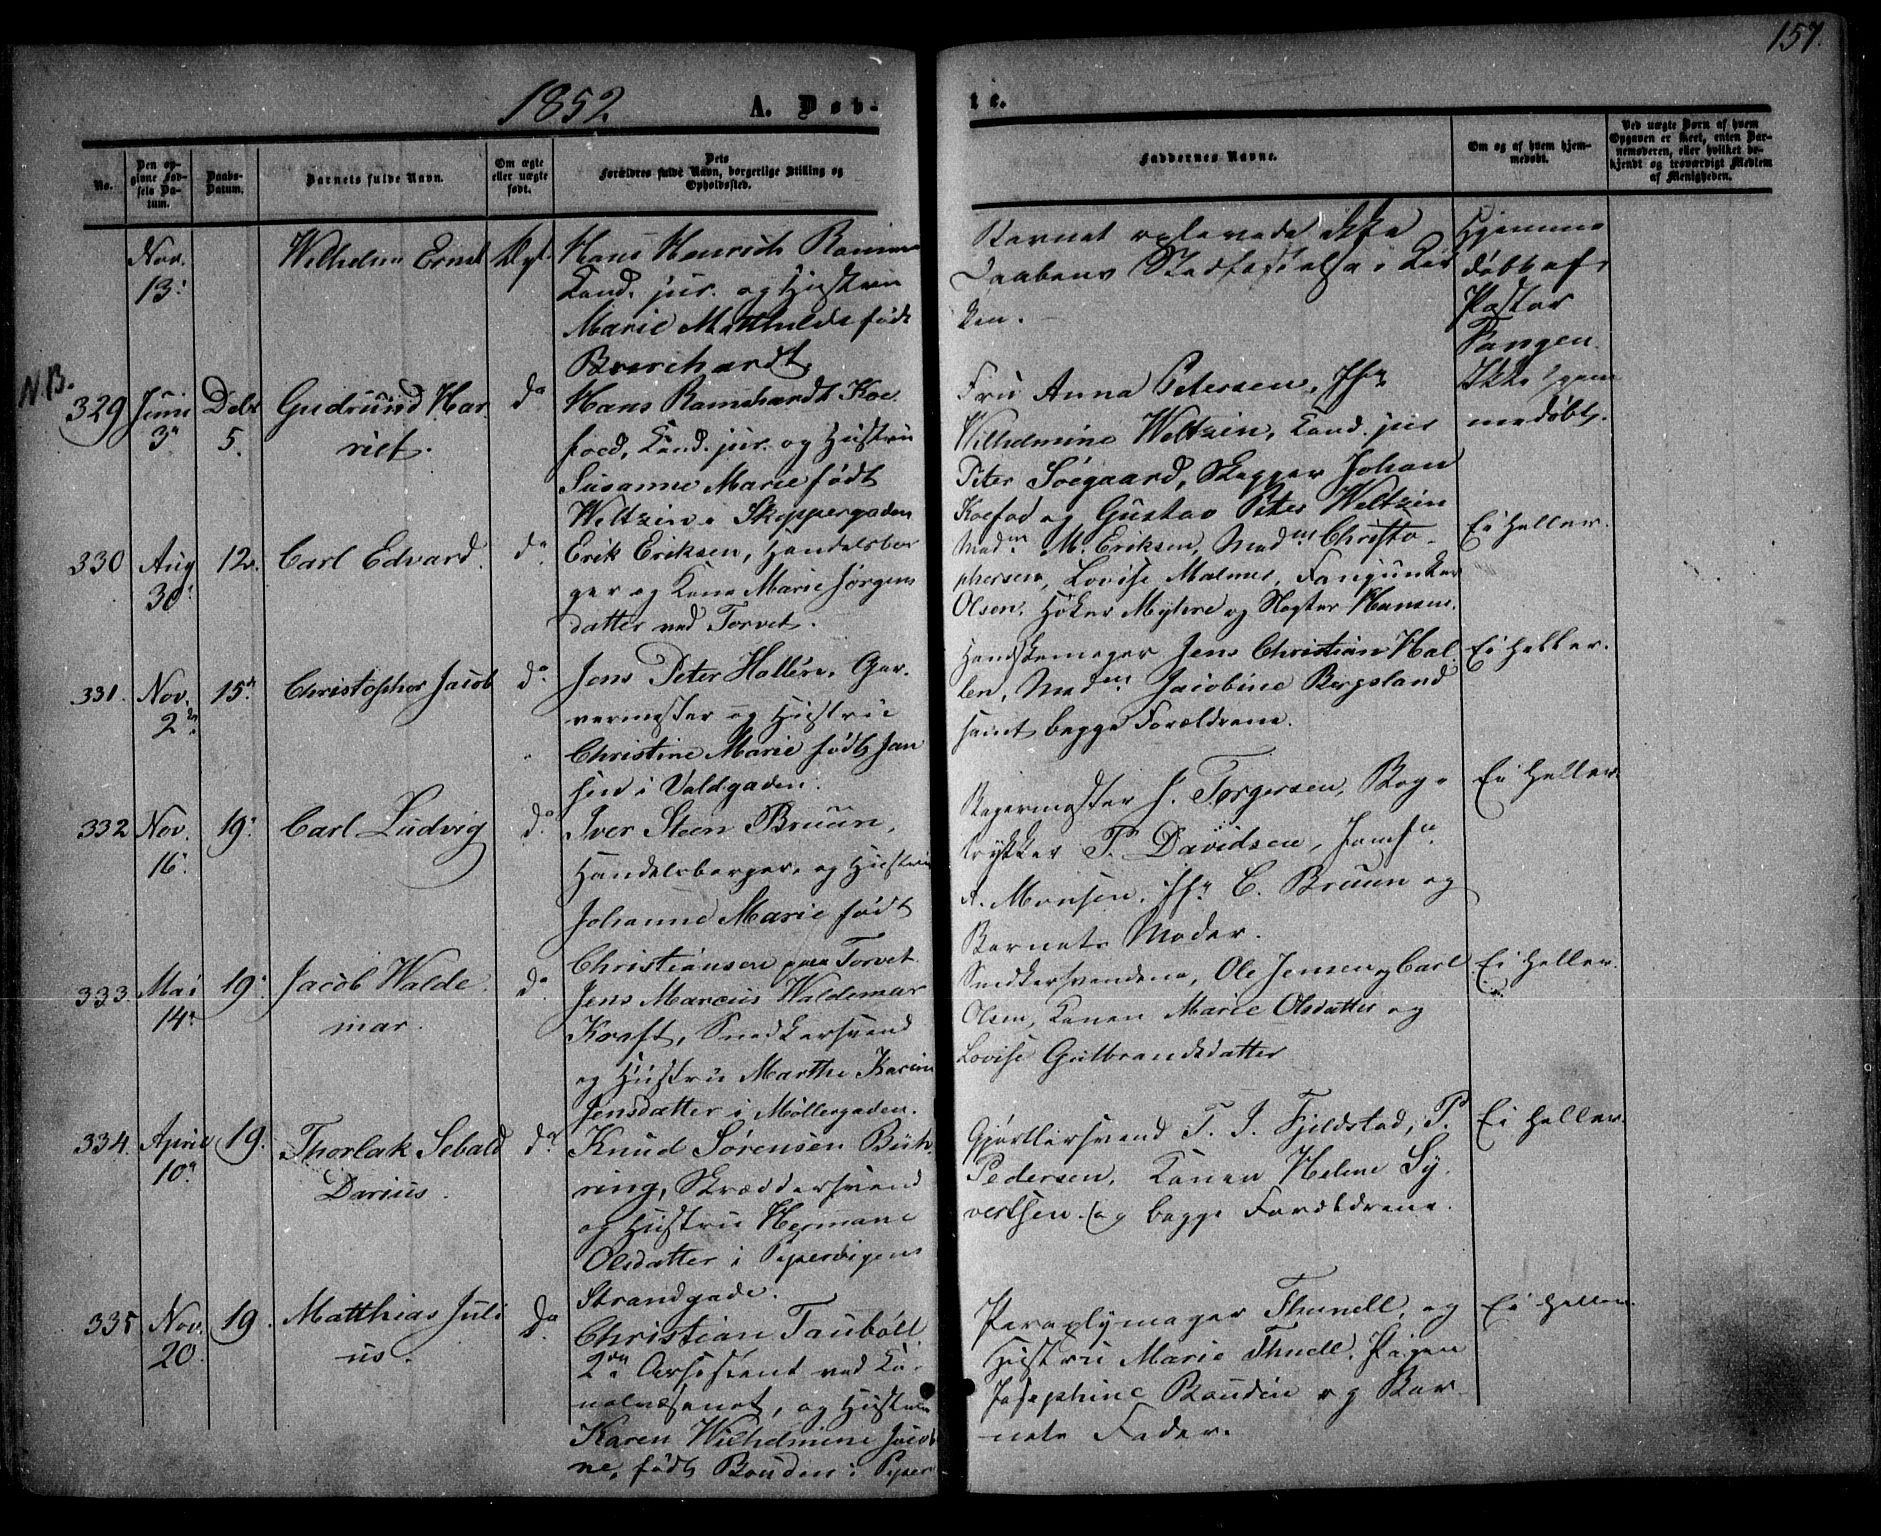 157.
1852
A. Døb-
te.
No.
Den opgivne Fødsels Datum.
Daabs-Datum.
Barnets fulde Navn.
Om ægte eller uægte født.
Dets Forældres fulde Navn, borgerlige Stilling og Opholdssted.
Faddernes Navne.
Om og af hvem hjemmedøbt.
Ved uægte Børn af hvem Opgaven er skeet, enten Barnemoderen, eller hvilket bekjendt og troværdigt Medlem af Menigheden.
Nov. 13.
Wilhelm Ernst
Hans Henrich
Cand. jur. og Hustru
Marie Mathilde født
Borchardt
Barnet oplevede ikke
Daabens Stadfæstelse i Kir
ken.
Hjemme
døbt af
Pastor
Pangen.
N.B.
329
Juni 3
Decbr 5.
Gudrund Har
riet.
do
Hans Ramshardt Koe
foed, Cand. jur. og Hustru
Susanne Marie født
Weltzin i Skippergaden
Fru Anna Petersen, Jfr
Wilhelmine Weltzin, Cand. jur
Peter Söegaard, Skipper Johan
Koefod og Gustav Peter Weltzin
Ikke hjem
medøbt.
330
Aug 30
12.
Carl Edvard.
do
Erik Eriksen, Handelsbor
ger og Kone Marie Jørgens
datter ved Torvet.
Madm. M. Eriksen, Madm Christo-
phersen, Lovise Malmer, Fanejunker
Olsen, Høker Myhre og Slagter Hansen.
Ei heller.
331.
Nov. 2
15
Christopher Jacob
do
Jens Peter Hallén, Gar
vermester og Hustru
Christine Marie født Jan
sen i Voldgaden.
Handskemager Jens Christian Hal
len, Madm Jacobine Bergsland
samt begge Forældrene.
Ei heller.
332
Nov. 16
19
Carl Ludvig
do
Iver Steen Bruun,
Handelsborger, og Hustru
Johanne Marie født
Christiansen paa Torvet
Bagermester J. Torgersen, Bog-
trykker P. Davidsen, Jomfr.
A. Monsen, Jfr C. Bruun og
Barnets Moder.
Ei heller.
333
Mai 14
19
Jacob Walde
mar.
do
Jens Marcus Waldemar
Kraft, Snedkersvend
og Hustru Marthe Karine
Jensdatter i Møllergaden.
Snedkersvendene, Ole Jensen og Carl
Olsen, Konen Marie Olsdatter og
Lovise Gulbrandsdatter
Ei heller.
334.
April 10
19.
Thorlak Sebald
Darius.
do
Knud Sørensen Büh
ring, Skræddersvend
og Hustru Hermane
Olsdatter i Pipervigens
Strandgade.
Gjørtlersvend T. I. Fjeldstad, P.
Pedersen, Konen Helene Sy
vertsen og begge Forældrene.
Ei heller.
335
Nov. 20
19.
Matthias Juli
us.
do
Christian Taubøll
2den Assistent ved Ca-
nalvæsenet, og Hustru
Karen Wilhelmine Jacobi
ne, født Boudin i Piper
Paraplymager Thunell, og
Hustru Marie Thuell, Pigen
Josephine Boudin og Bar-
nets Fader.
Ei heller.